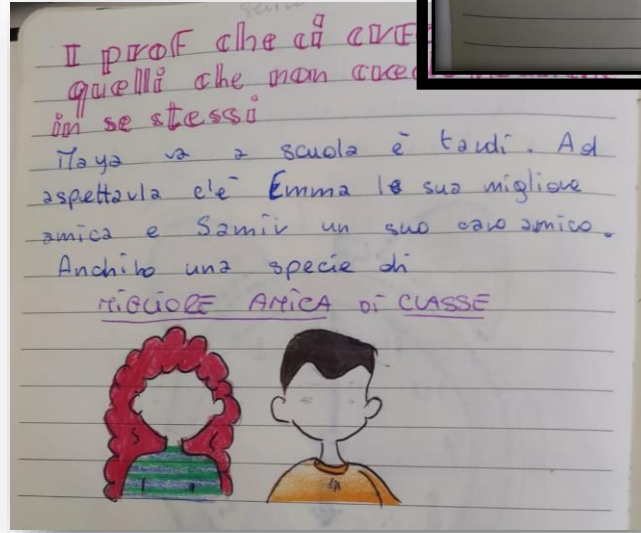 I prof che ci
quelli che non
in se stessi
Maya va a scuola è tardi. Ad
aspettarla c'è Emma la sua migliore
amica e Samir un suo caro amico.
una specie di
MIGLIORE AMICA Di CLASSE